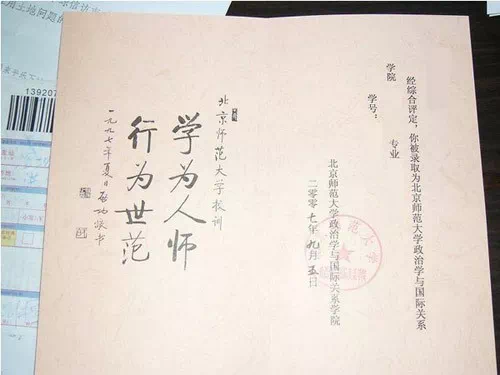 经综合评定，你被录取为北京师范大学政治学与国际关系
学院 专业
学号：
北京师范大学政治学与国际关系学院
二零零七年九月五日
北京师范大学校训
学为人师
行为世范
一九九七年夏日启功敬书
土地问题的
139207